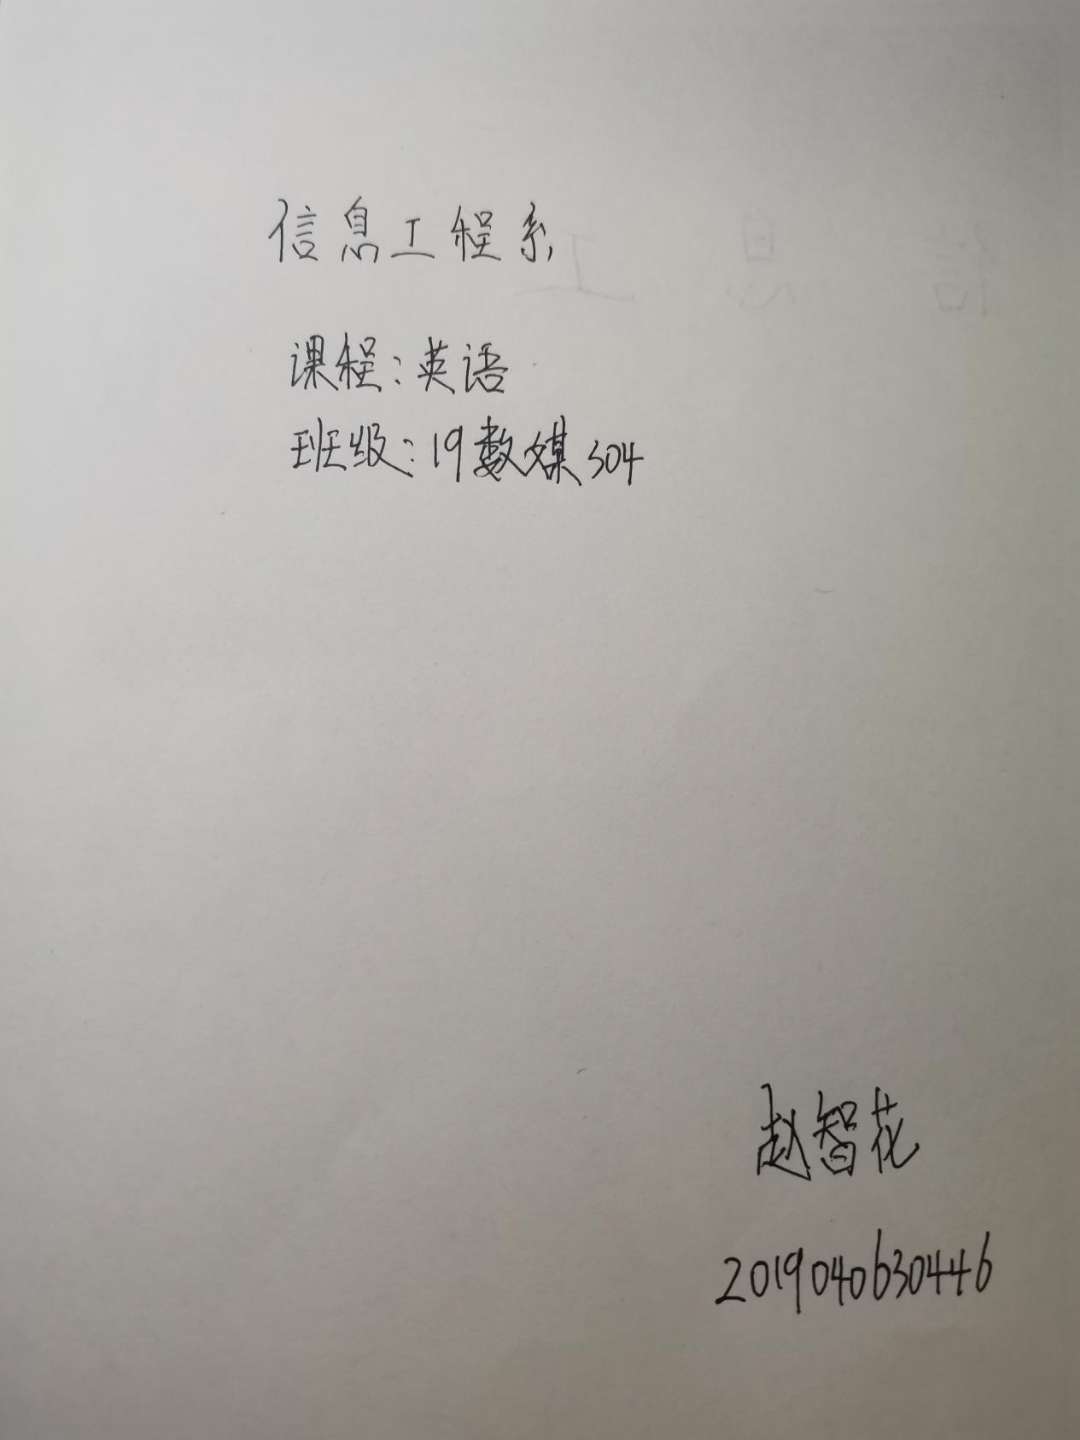 信息工程系
课程:英语
班级:19数媒304
赵智花
2019040630446